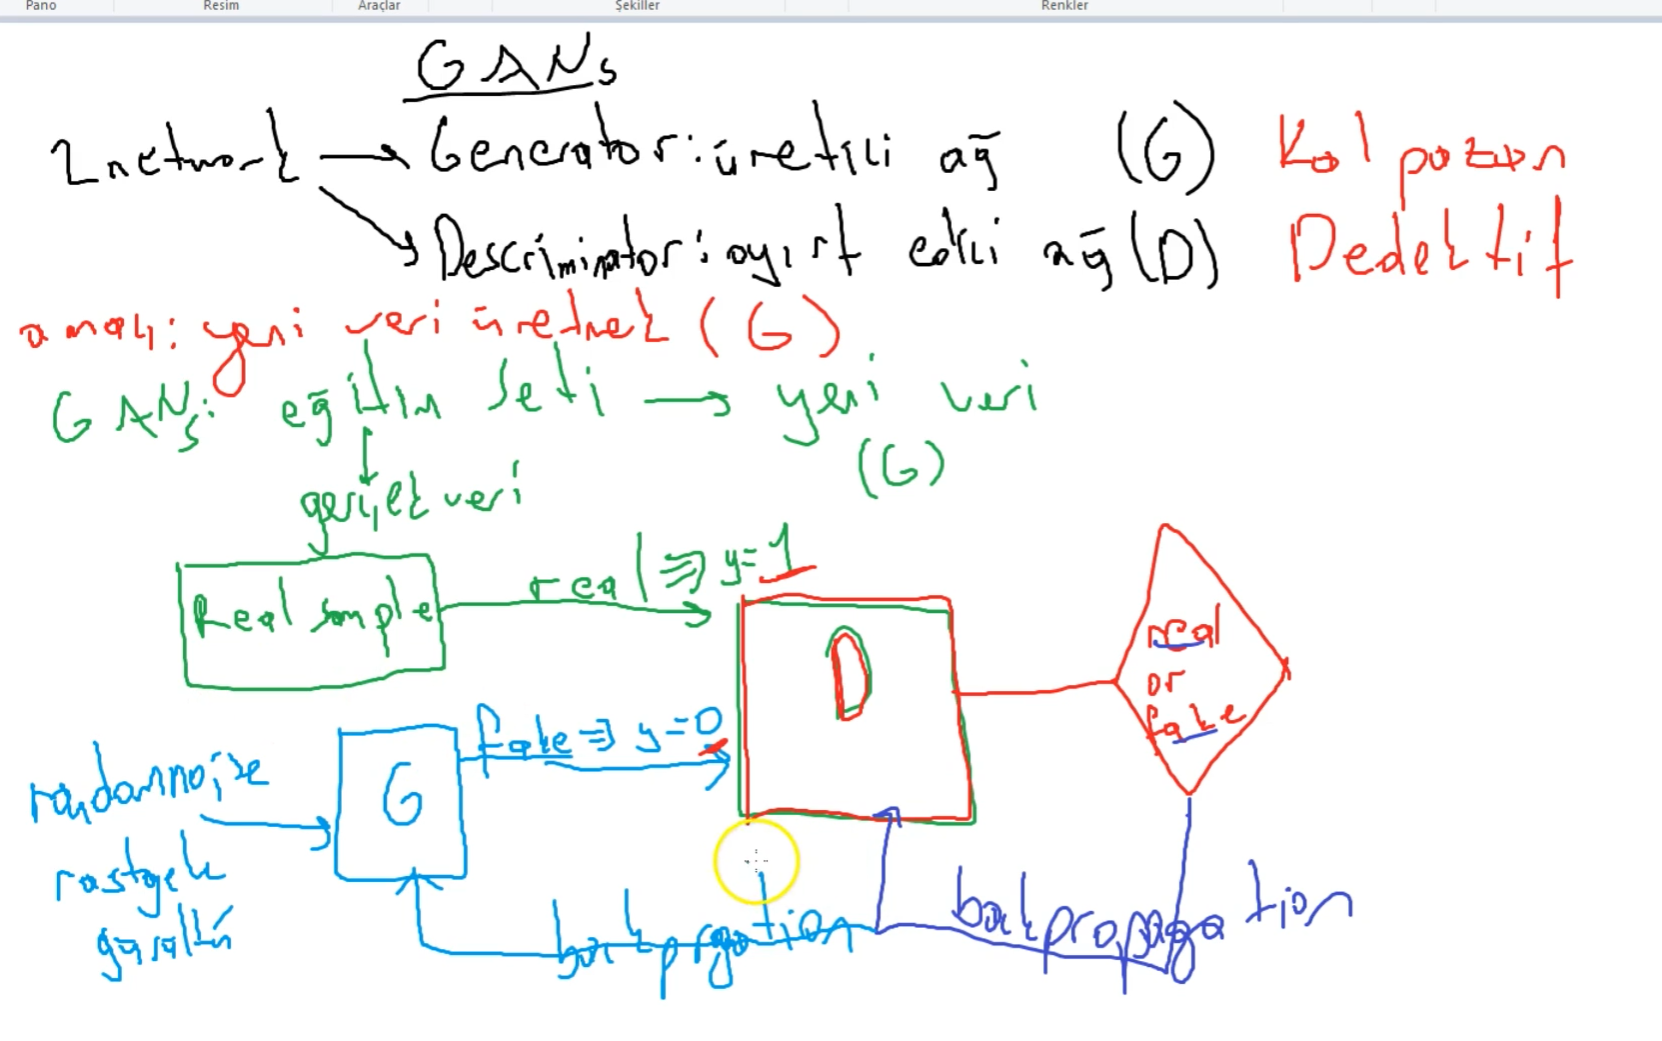 Pano Resim Araçlar Şekiller Renkler
GANs
2 network → Generator: üretici ağ (G) Kalpazan
Descriminator: ayırt edici ağ (D) Dedektif
amaç: yeni veri üretmek (G)
GANs: eğitim seti → yeni veri
(G)
gerçek veri
real ⇒ y=1
Real sample
D
real
or
fake
fake ⇒ y=0
G
random noise
rastgele
gürültü
backprgation
backpropagation